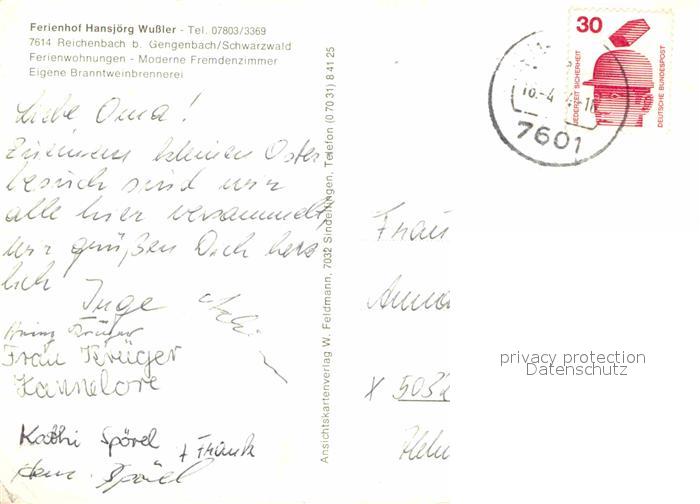 Ferienhof Hansjörg Wußler - Tel. 07803/3369
7614 Reichenbach b. Gengenbach/Schwarzwald
Ferienwohnungen - Moderne Fremdenzimmer
Eigene Branntweinbrennerei
Liebe Oma!
Zu einem kleinen Oster
besuch sind wir
alle hier versammelt,
wir grüßen Dich herz
lich
Inge
Heinz Krüger
Frau Krüger
Hannelore
Kathi Spörel + Frank
Spörel
Ansichtskartenverlag W. Feldmann, 7032 Sindelfingen, Telefon (0 70 31) 8 41 25
30
JEDERZEIT SICHERHEIT
DEUTSCHE BUNDESPOST
7601
Frau
Anna
X 5032
privacy protection
Datenschutz